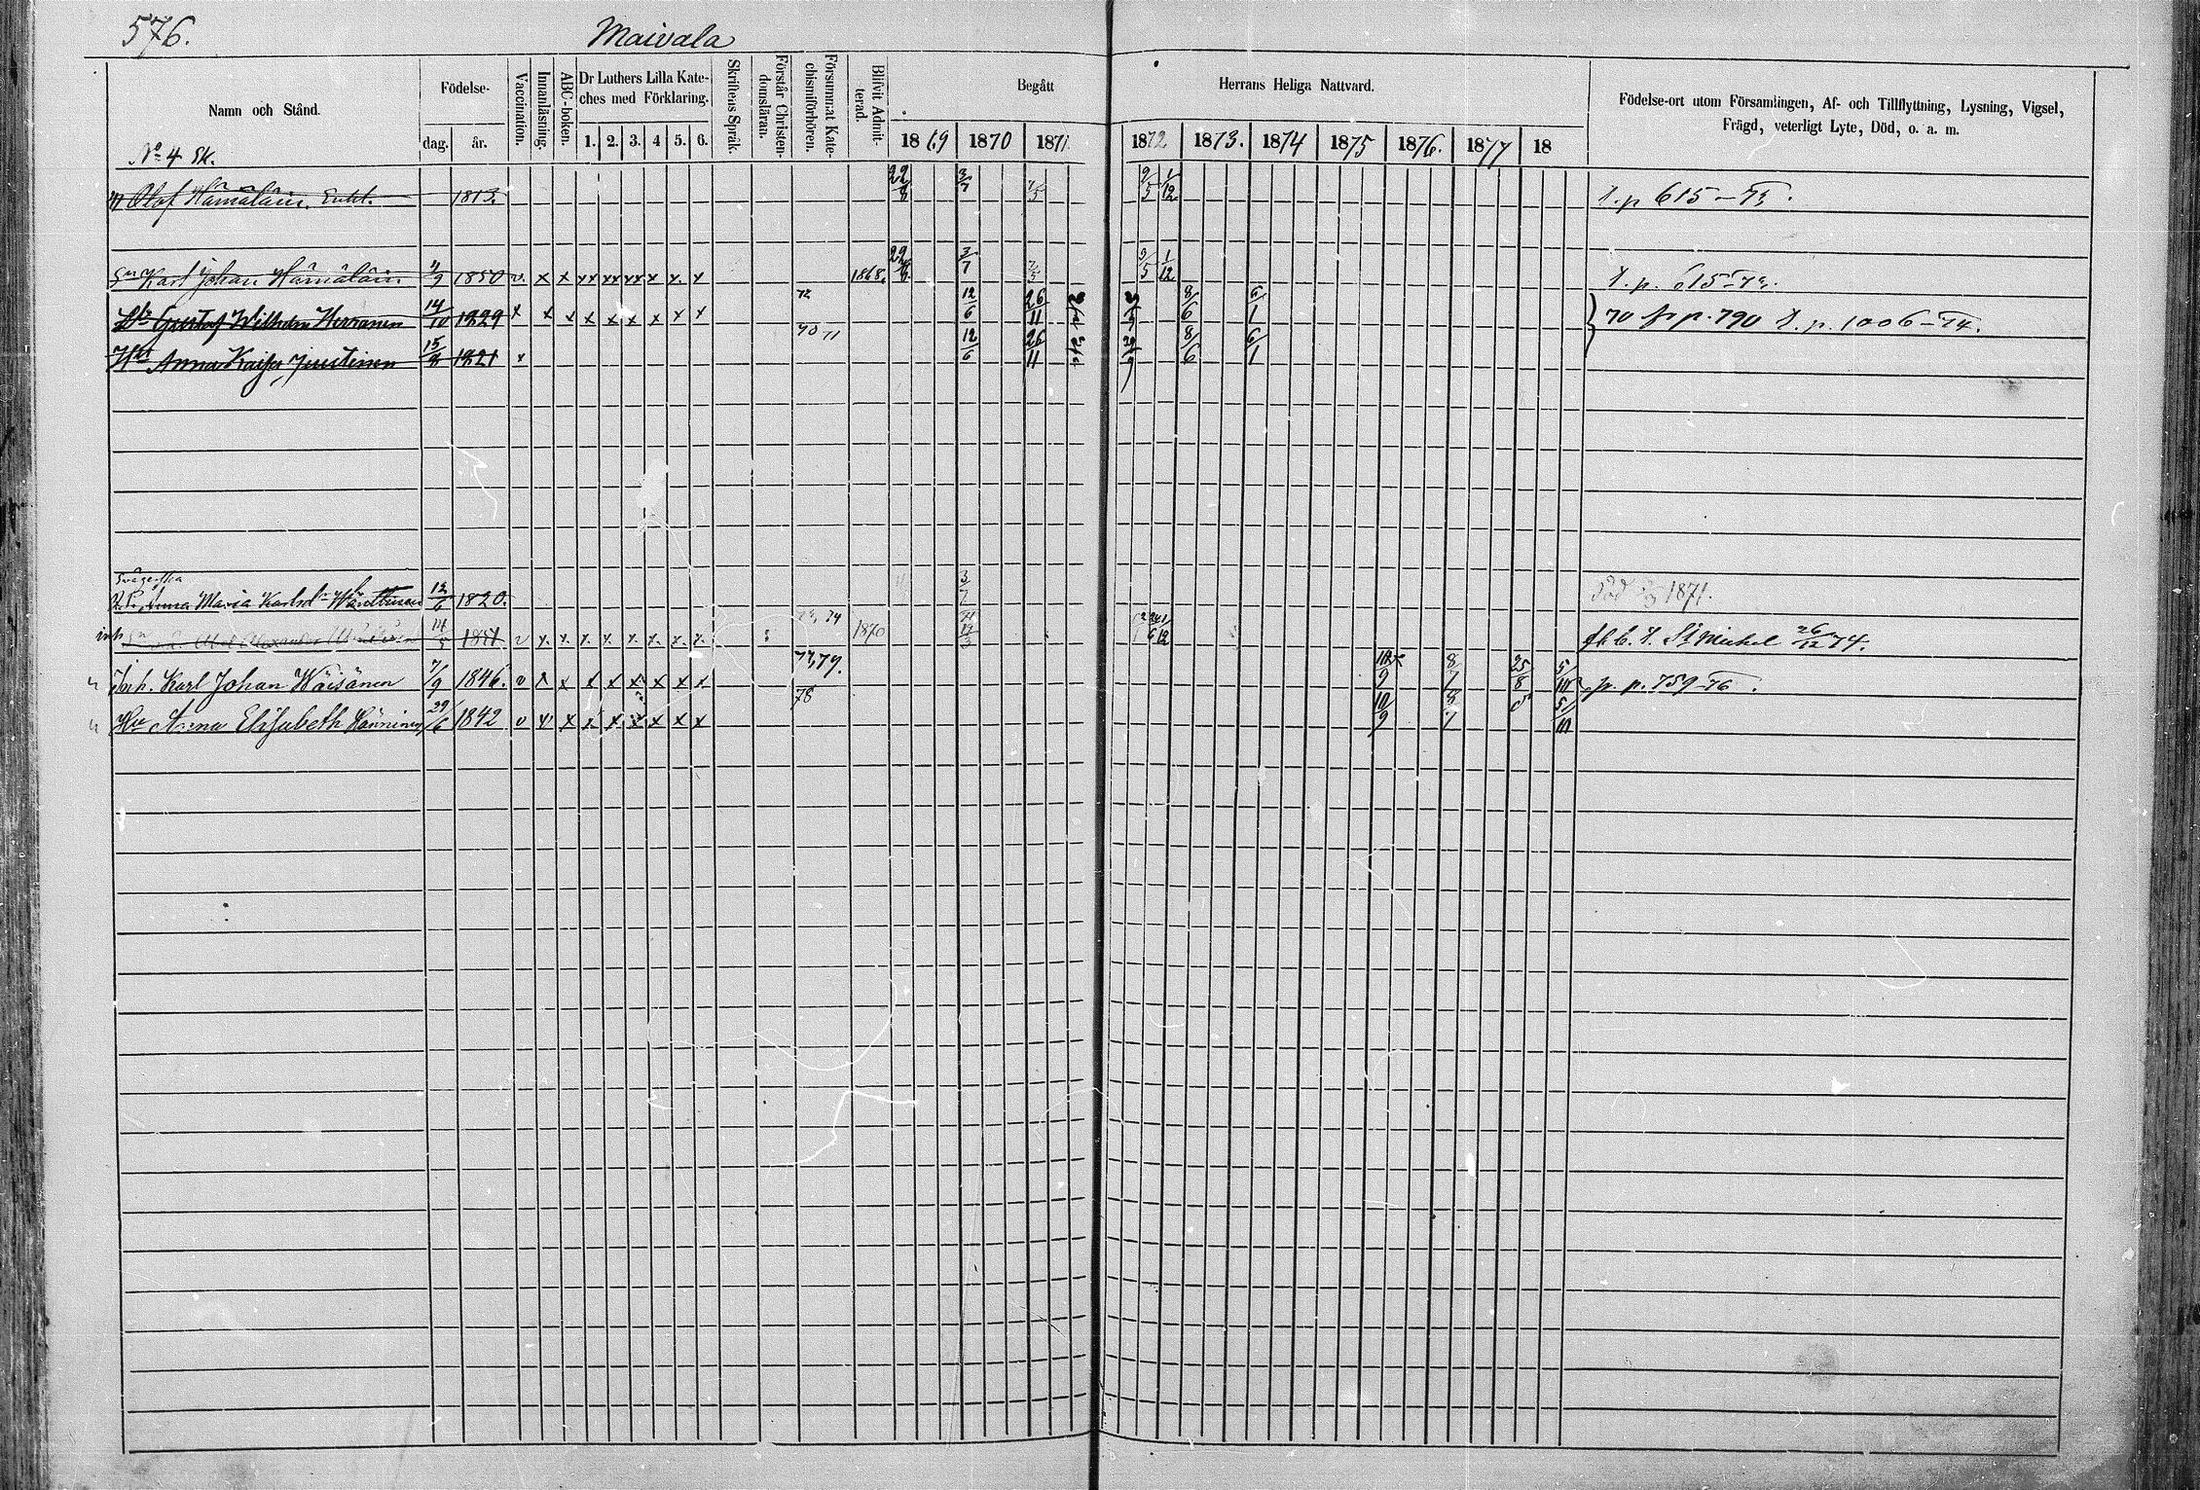 576.
Maivala
Namn och Stånd.
Födelse-
dag. år.
Vaccination.
Innanläsning.
ABC-boken.
Dr Luthers Lilla Kate-
ches med Förklaring.
1. 2. 3. 4 5. 6.
Skriftens Språk.
Förstår Christen-
domsläran.
Försummat Kate-
chismiförhören.
Blifvit Admit-
terad.
Begått Herrans Heliga Nattvard.
1869 1870 1871 1872 1873. 1874 1875 1876. 1877 18
Födelse-ort utom Församlingen, Af- och Tillflyttning, Lysning, Vigsel,
Frägd, veterligt Lyte, Död, o. a. m.
No 4 Sk.
Olof Hämäläin, Enkl. 1813. 22/8 3/7 7/5 9/5 1/12 p 615-73.
Sn Karl Johan Hämäläin 1850 v. x x xx xx xx x x. x 1868. 3/7 7/5 1/12 p. 615
Gustaf Wilhelm Herranen 14/10 1829 x x x x x x x x x 72 12/6 26/11 8/6 6/1 70 fr p. 790 p. 1006-74.
Hu Anna Kaisa Juutinen 15/8 1821 x 70 71 12/6 26/11 29/9 8/6 6/1
Svägerska
Anna Maria Karlsdr 12/6 1820. 3/7 död 1871.
inh 1851 v x. x. x. x. x. x. x. x. 74 1870 St Michel 26/12 74.
Inh. Karl Johan Wäisänen 7/9 1846. v x x x x x x x x 77, 79. 10/9 8/7 25/8 5/10 p. 759-76.
Hu Anna Elisabeth Hänninen 29/6 1842 v x x x x x x x x 78 10/9 8/7 5/10